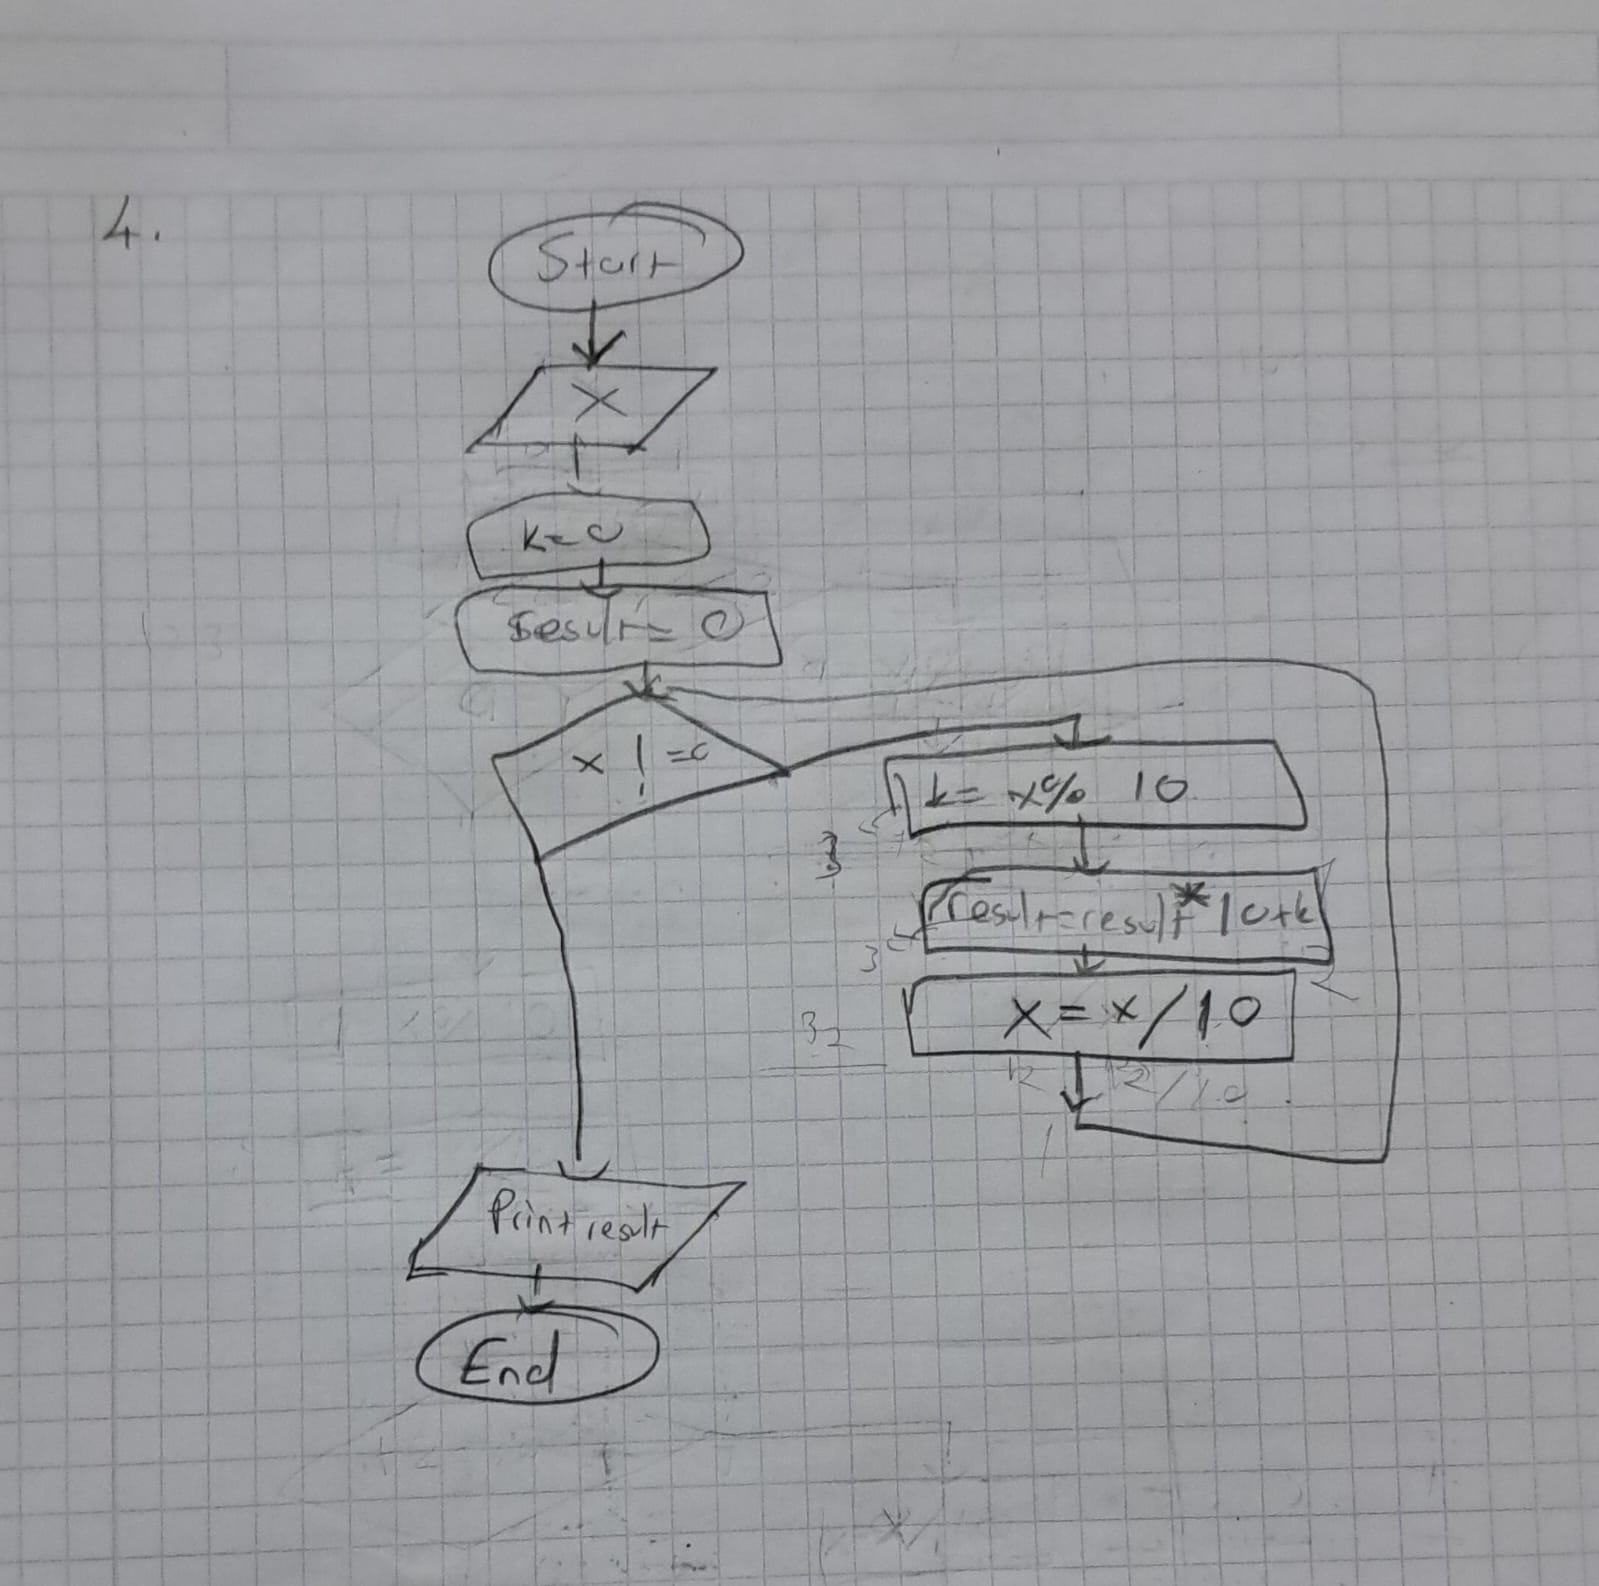 4.
Start
X
k=0
result= 0
x !=0
k= x% 10
3
result=result*10+k
3
X = x/10
32
12 12/10
1
Print result
End